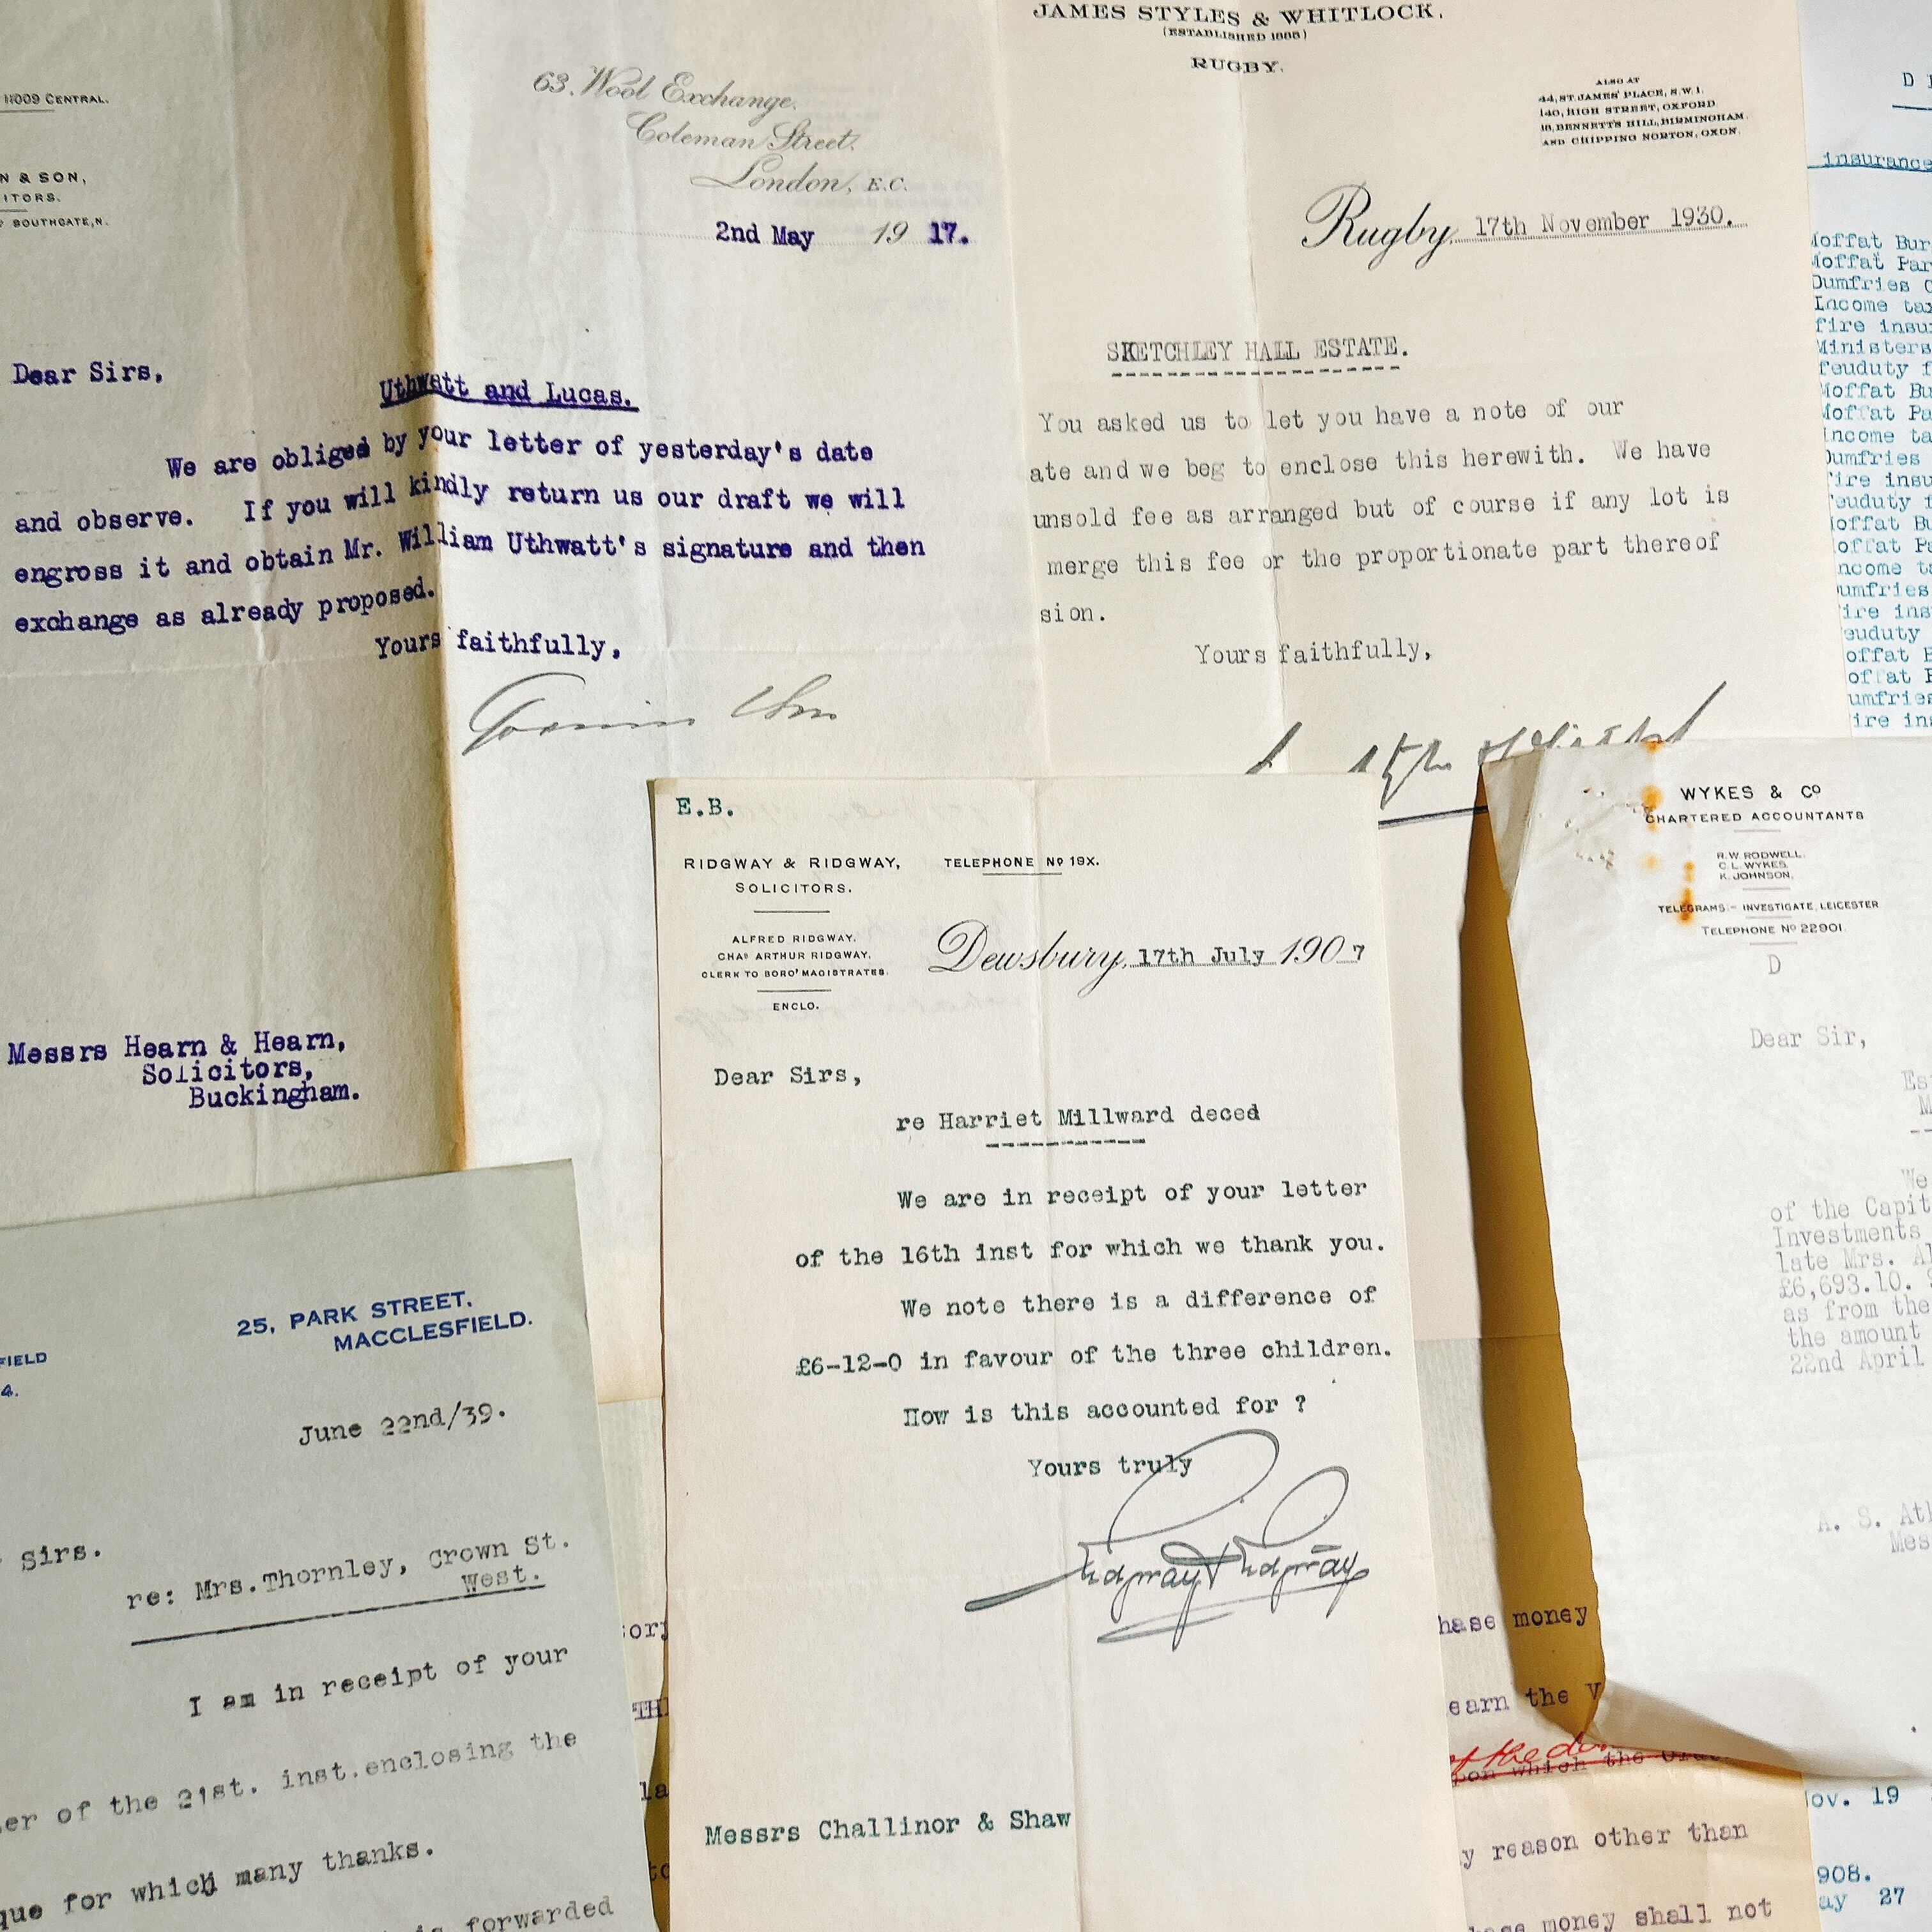 11009 CENTRAL.
N & SON,
ITORS.
SOUTHGATE, N.
63, Wool Exchange,
Coleman Street,
London, E.C.
2nd May 1917.
Dear Sirs,
Uthwatt and Lucas.
We are obliged by your letter of yesterday's date
and observe. If you will kindly return us our draft we will
engross it and obtain Mr. William Uthwatt's signature and then
exchange as already proposed.
Yours faithfully,
Messrs Hearn & Hearn,
Solicitors,
Buckingham.
JAMES STYLES & WHITLOCK.
(ESTABLISHED 1885)
RUGBY.
ALSO AT
44, ST. JAMES' PLACE, S.W.1.
140, HIGH STREET, OXFORD
18, BENNETT'S HILL, BIRMINGHAM.
AND CHIPPING NORTON, OXON.
Rugby, 17th November 1930.
SKETCHLEY HALL ESTATE.
You asked us to let you have a note of our
ate and we beg to enclose this herewith. We have
unsold fee as arranged but of course if any lot is
merge this fee or the proportionate part thereof
sion.
Yours faithfully,
D
insurance
Moffat Bur
Moffat Par
Dumfries C
Income tax
fire insu
Ministers
feuduty f
Moffat Bu
Moffat Pa
Income ta
Dumfries
ire insu
euduty f
offat Bu
offat Pa
ncome ta
umfries
ire ins
euduty
offat B
offat P
umfries
ire ins
E.B.
RIDGWAY & RIDGWAY,
SOLICITORS.
ALFRED RIDGWAY.
CHAS ARTHUR RIDGWAY.
CLERK TO BORO' MAGISTRATES.
ENCLO.
TELEPHONE No 19X.
Dewsbury, 17th July 1907
Dear Sirs,
re Harriet Millward deced
We are in receipt of your letter
of the 16th inst for which we thank you.
We note there is a difference of
£6-12-0 in favour of the three children.
How is this accounted for ?
Yours truly
Ridgway & Ridgway
Messrs Challinor & Shaw
WYKES & Co
CHARTERED ACCOUNTANTS
R.W. RODWELL.
C.L. WYKES.
K. JOHNSON.
TELEGRAMS:- INVESTIGATE, LEICESTER
TELEPHONE No 22901.
D
Dear Sir,
Es
M
We
of the Capit
Investments
late Mrs. Al
£6,693.10.
as from the
the amount
22nd April
A. S. Atk
Mes
25, PARK STREET,
MACCLESFIELD.
FIELD
4.
June 22nd/39.
Sirs.
re: Mrs.Thornley, Crown St.
West.
I am in receipt of your
er of the 21st. inst.enclosing the
que for which many thanks.
is forwarded
ory
TH
la
to
hase money
earn the V
of the d
pon which the
y reason other than
hase money shall not
ov. 19
908.
ay 27